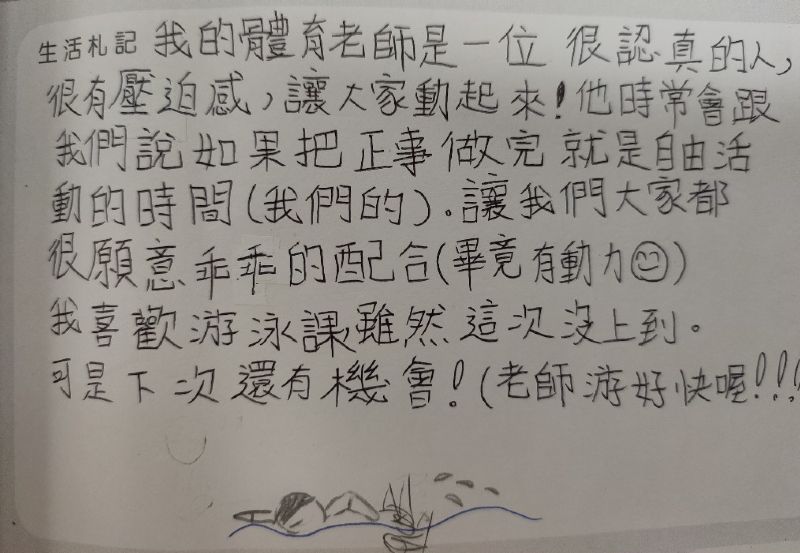 生活札記 我的體育老師是一位 很認真的人，
很有壓迫感，讓大家動起來！他時常會跟
我們說如果把正事做完就是自由活
動的時間(我們的)。讓我們大家都
很願意乖乖的配合(畢竟有動力😊)
我喜歡游泳課，雖然這次沒上到。
可是下次還有機會！(老師游好快喔!!!